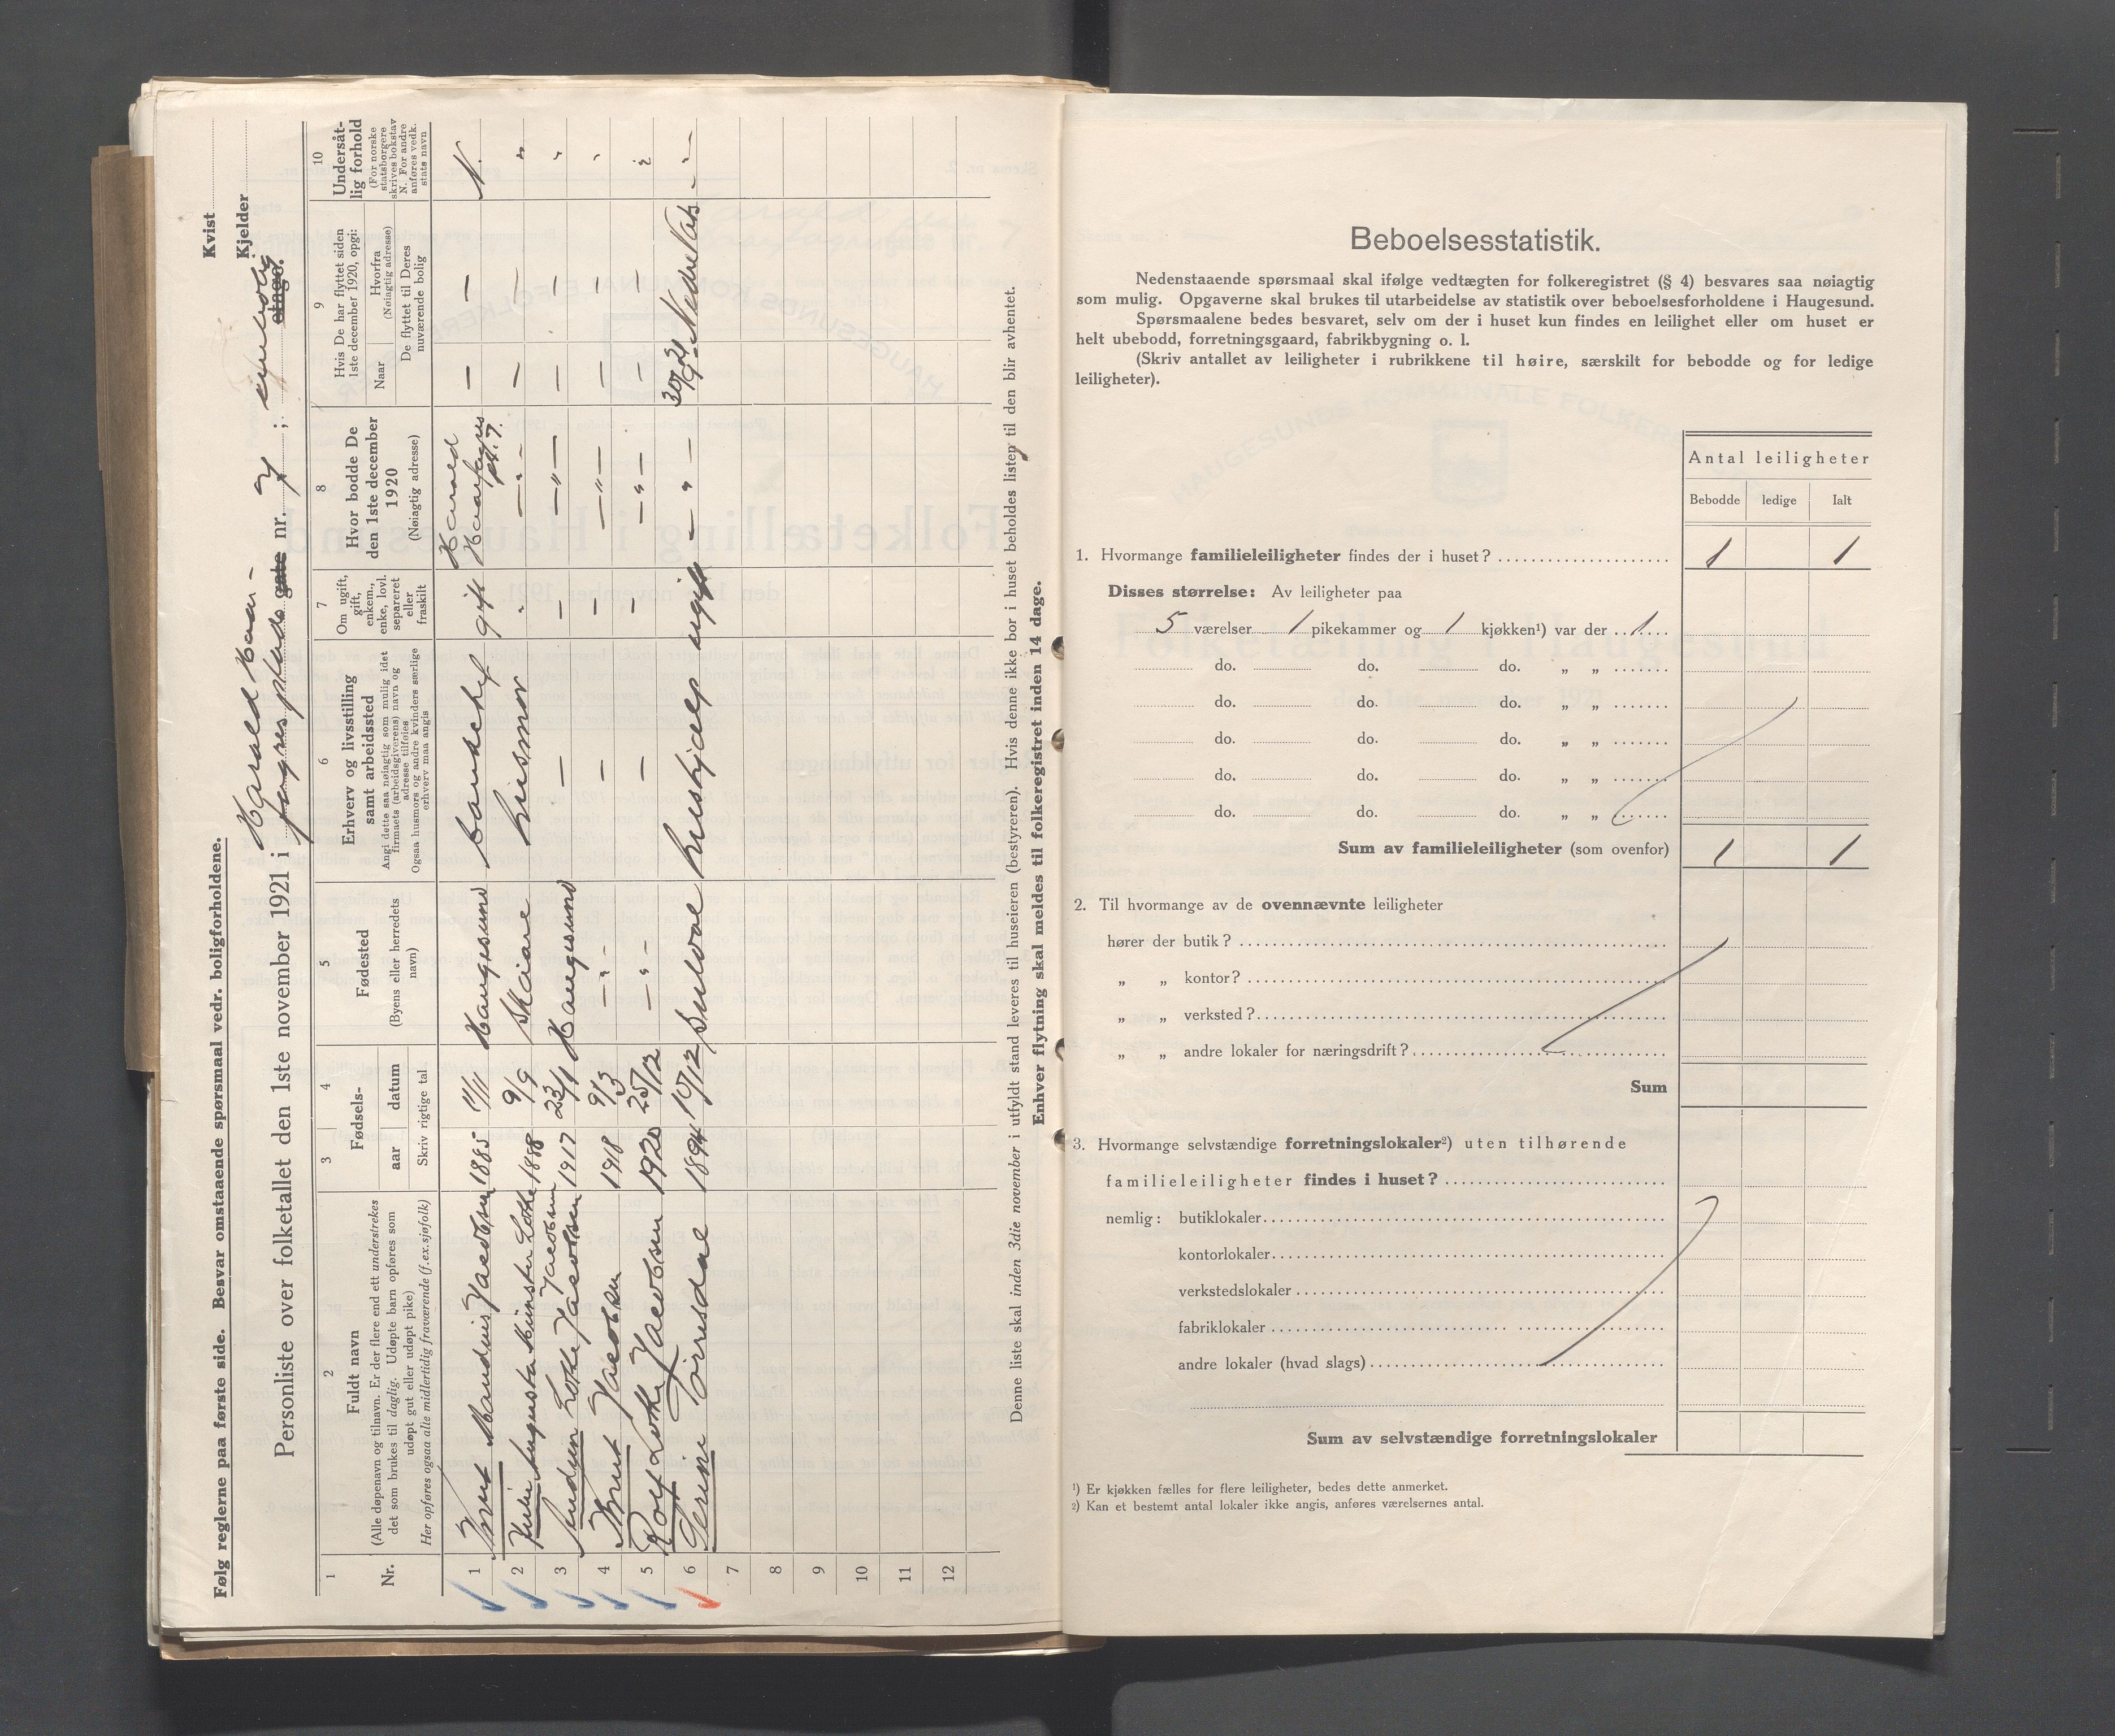 Følg reglerne paa første side. Besvar omstaaende spørsmaal vedr. boligforholdene.
Kvist
Kjelder
Harald Haar-
Personliste over folketallet den 1ste november 1921 i fagres plads gate nr. 7 ; enebolig etage.
1 2 3 4 5 6 7 8 9 10
Nr.
Fuldt navn
(Alle døpenavn og tilnavn. Er der flere end ett understrekes
det som brukes til daglig. Udøpte barn opføres som
udøpt gut eller udøpt pike)
Her opføres ogsaa alle midlertidig fraværende (f. ex. sjøfolk)
Fødsels-
aar datum
Skriv rigtige tal
Fødested
(Byens eller herredets
navn)
Erhverv og livsstilling
samt arbeidssted
Angi dette saa nøiagtig som mulig idet
firmaets (arbeidsgiverens) navn og
adresse tilføies
Ogsaa husmors og andre kvinders særlige
erhverv maa angis
Om ugift,
gift,
enkem.,
enke, lovl.
separeret
eller
fraskilt
Hvor bodde De
den 1ste december
1920
(Nøiagtig adresse)
Hvis De har flyttet siden
1ste december 1920, opgi:
Naar
Hvorfra
(Nøiagtig adresse)
De flyttet til Deres
nuværende bolig
Undersåt-
lig forhold
(For norske
statsborgere
skrives bokstav
N. For andre
anføres vedk.
stats navn
1 Knut Jacobsen 1885 11/11 Haugesund bankchef gift Harald Haarfagres pl. 7. — — N.
2 Augusta Munster Lothe Jacobsen 1888 9/9 Skaare husmor " —"— — — "
3 Lothe Jacobsen 1917 23/1 Haugesund — — —"— — — "
4 Knut Jacobsen 1918 9/3 —"— — — —"— — — "
5 Rolf Lothe Jacobsen 1920 25/12 —"— — — —"— — — "
6 Serine Torrisdal 1894 14/12 hushjælp ugift — " — Nedre Vats — " —
7
8
9
10
11
12
Denne liste skal inden 3die november i utfyldt stand leveres til huseieren (bestyreren). Hvis denne ikke bor i huset beholdes listen til den blir avhentet.
Enhver flytning skal meldes til folkeregistret inden 14 dage.
Beboelsesstatistik.
Nedenstaaende spørsmaal skal ifølge vedtægten for folkeregistret (§ 4) besvares saa nøiagtig
som mulig. Opgaverne skal brukes til utarbeidelse av statistik over beboelsesforholdene i Haugesund.
Spørsmaalene bedes besvaret, selv om der i huset kun findes en leilighet eller om huset er
helt ubebodd, forretningsgaard, fabrikbygning o. l.
(Skriv antallet av leiligheter i rubrikkene til høire, særskilt for bebodde og for ledige
leiligheter).
Antal leiligheter
Bebodde ledige Ialt
1. Hvormange familieleiligheter findes der i huset? 1 1
Disses størrelse: Av leiligheter paa
5 værelser 1 pikekammer og 1 kjøkken¹) var der 1
do. do. do. „ „
do. do. do. „ „
do. do. do. „ „
do. do. do. „ „
do. do. do. „ „
Sum av familieleiligheter (som ovenfor) 1 1
2. Til hvormange av de ovennævnte leiligheter
hører der butik?
„ „ kontor?
„ „ verksted?
„ „ andre lokaler for næringsdrift?
Sum
3. Hvormange selvstændige forretningslokaler²) uten tilhørende
familieleiligheter findes i huset?
nemlig: butiklokaler
kontorlokaler
verkstedslokaler
fabriklokaler
andre lokaler (hvad slags)
Sum av selvstændige forretningslokaler
¹) Er kjøkken fælles for flere leiligheter, bedes dette anmerket.
²) Kan et bestemt antal lokaler ikke angis, anføres værelsernes antal.